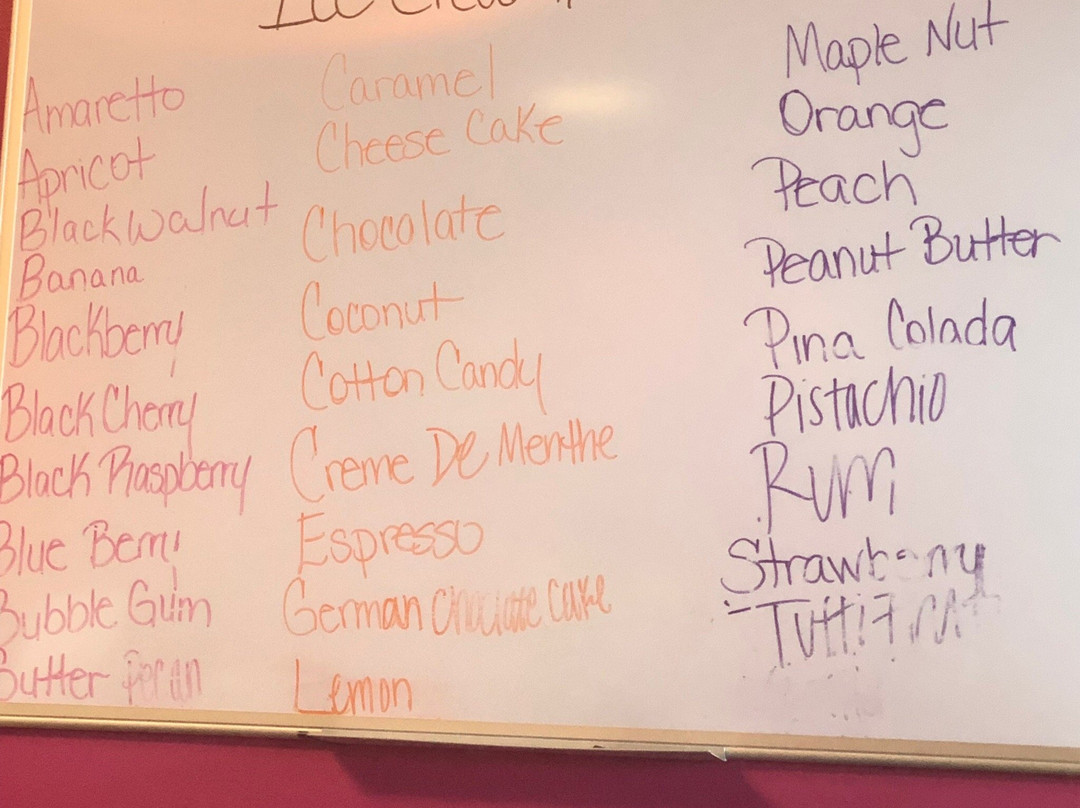 Ice Cream
Amaretto
Apricot
Black walnut
Banana
Blackberry
Black Cherry
Black Raspberry
Blue Berry
Bubble Gum
Butter Pecan
Caramel
Cheese Cake
Chocolate
Coconut
Cotton Candy
Creme De Menthe
Espresso
German Chocolate Cake
Lemon
Maple Nut
Orange
Peach
Peanut Butter
Pina Colada
Pistachio
Rum
Strawberry
Tutti Frutti